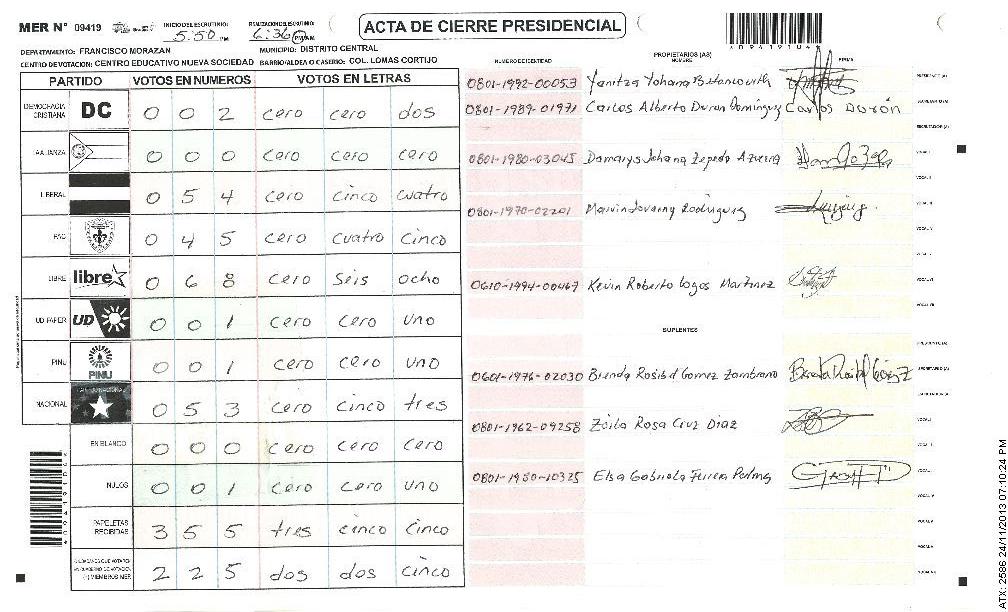 MER Nº 09419 INICIO DEL ESCRUTINIO: 5:50 PM FINALIZACION DEL ESCRUTINIO: 6:36 PM/AM ACTA DE CIERRE PRESIDENCIAL
*09419104*
DEPARTAMENTO: FRANCISCO MORAZAN MUNICIPIO: DISTRITO CENTRAL
CENTRO DE VOTACION: CENTRO EDUCATIVO NUEVA SOCIEDAD BARRIO/ALDEA O CASERIO: COL. LOMAS CORTIJO
PARTIDO VOTOS EN NUMEROS VOTOS EN LETRAS
DEMOCRACIA CRISTIANA DC 0 0 2 cero cero dos
ALIANZA 0 0 0 cero cero cero
LIBERAL 0 5 4 cero cinco cuatro
PAC 0 4 5 cero cuatro cinco
LIBRE libre 0 6 8 cero seis ocho
UD FAPER UD 0 0 1 cero cero uno
PINU PINU 0 0 1 cero cero uno
NACIONAL 0 5 3 cero cinco tres
EN BLANCO 0 0 0 cero cero cero
NULOS 0 0 1 cero cero uno
PAPELETAS RECIBIDAS 3 5 5 tres cinco cinco
CIUDADANOS QUE VOTARON EN CUADERNO DE VOTACION (+) MIEMBROS MER 2 2 5 dos dos cinco
PROPIETARIOS (AS)
NUMERO DE IDENTIDAD NOMBRE FIRMA
0801-1992-00053 Yanitza Yohana PRESIDENTE (A)
0801-1989-01971 Carlos Alberto Duron Dominguez Carlos Durón SECRETARIO (A)
ESCRUTADOR (A)
0801-1980-03045 Damarys Johana Zepeda VOCAL I
VOCAL II
0801-1970-02201 Marvin Rodriguez VOCAL III
VOCAL IV
VOCAL V
0610-1994-00467 Kevin Roberto Lagos Martinez VOCAL VI
VOCAL VII
SUPLENTES
PRESIDENTE (A)
0601-1976-02030 Brenda Rosibel Gomez Zambrano SECRETARIO (A)
ESCRUTADOR (A)
0801-1962-09258 Zoila Rosa Cruz Diaz VOCAL I
VOCAL II
0801-1950-10325 Elsa Gabriela VOCAL III
VOCAL IV
VOCAL V
VOCAL VI
VOCAL VII
*09419104*
ATX: 2586 24/11/2013 07:10:24 PM